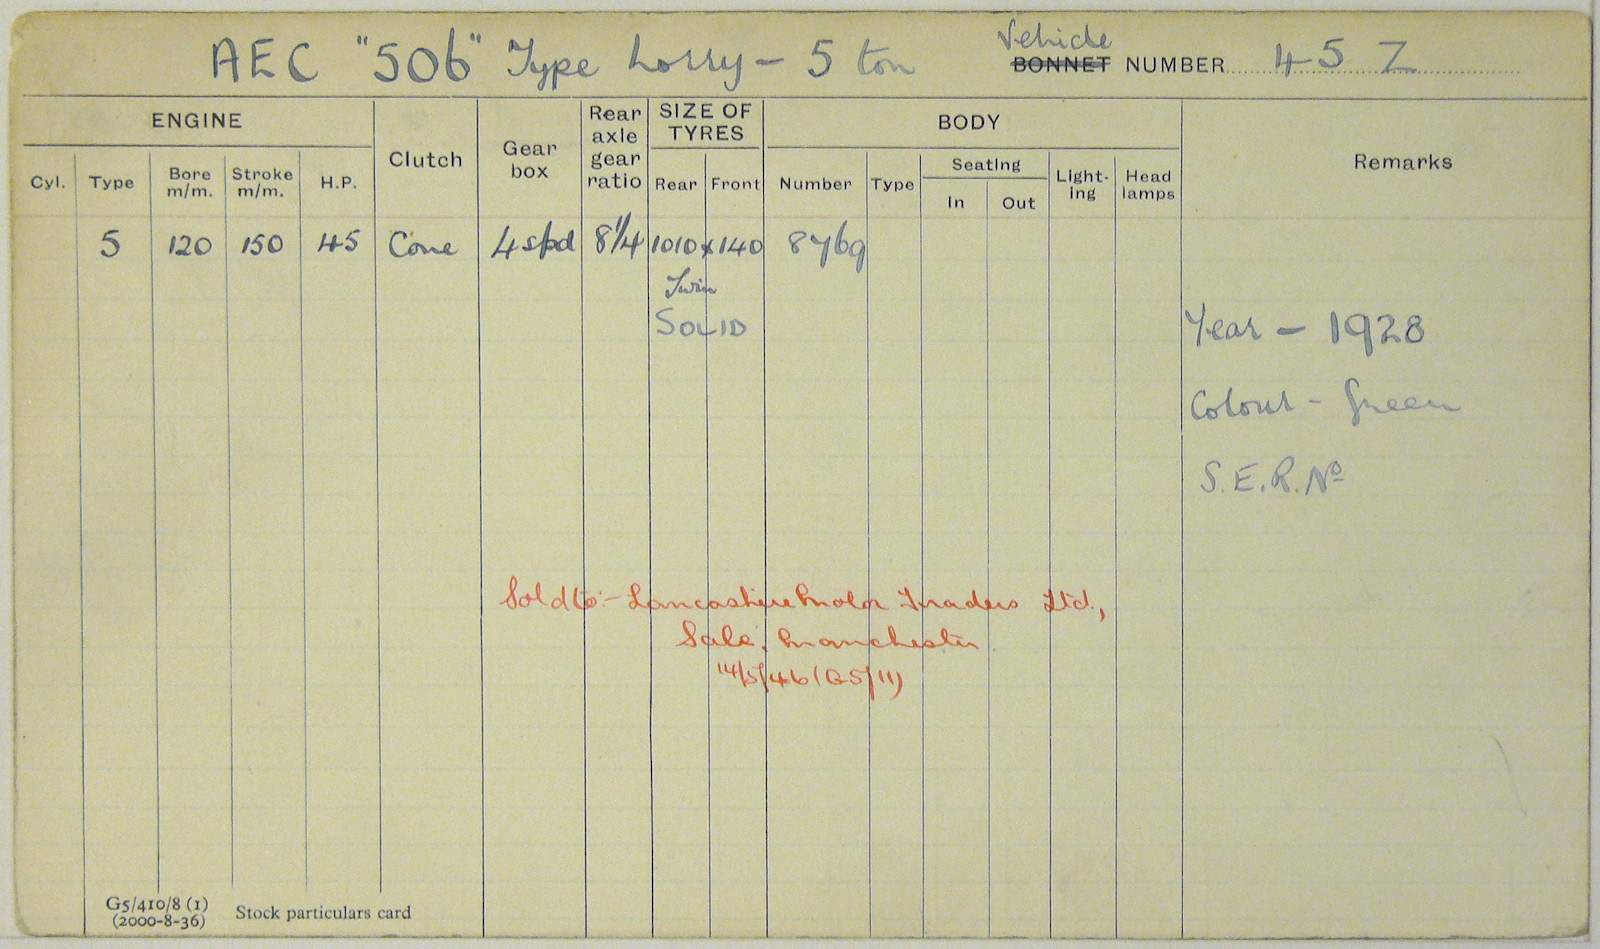 AEC "506" Type Lorry - 5 ton Vehicle BONNET NUMBER 45 Z
ENGINE
Cyl. Type Bore m/m. Stroke m/m. H.P.
Clutch
Gear box
Rear axle gear ratio
SIZE OF TYRES
Rear Front
BODY
Number Type Seating In Out Light-ing Head lamps
Remarks
5 120 150 45 Cone 4 spd 8 1/4 1010 x 140 8769
Twin
SOLID
Year - 1928
Colour - Green
S.E.R. Nº
Sold to:- Lancashire Motor Traders Ltd.,
Sale, Manchester.
14/5/46 (G5/11)
G5/410/8 (1)
(2000-8-36)
Stock particulars card